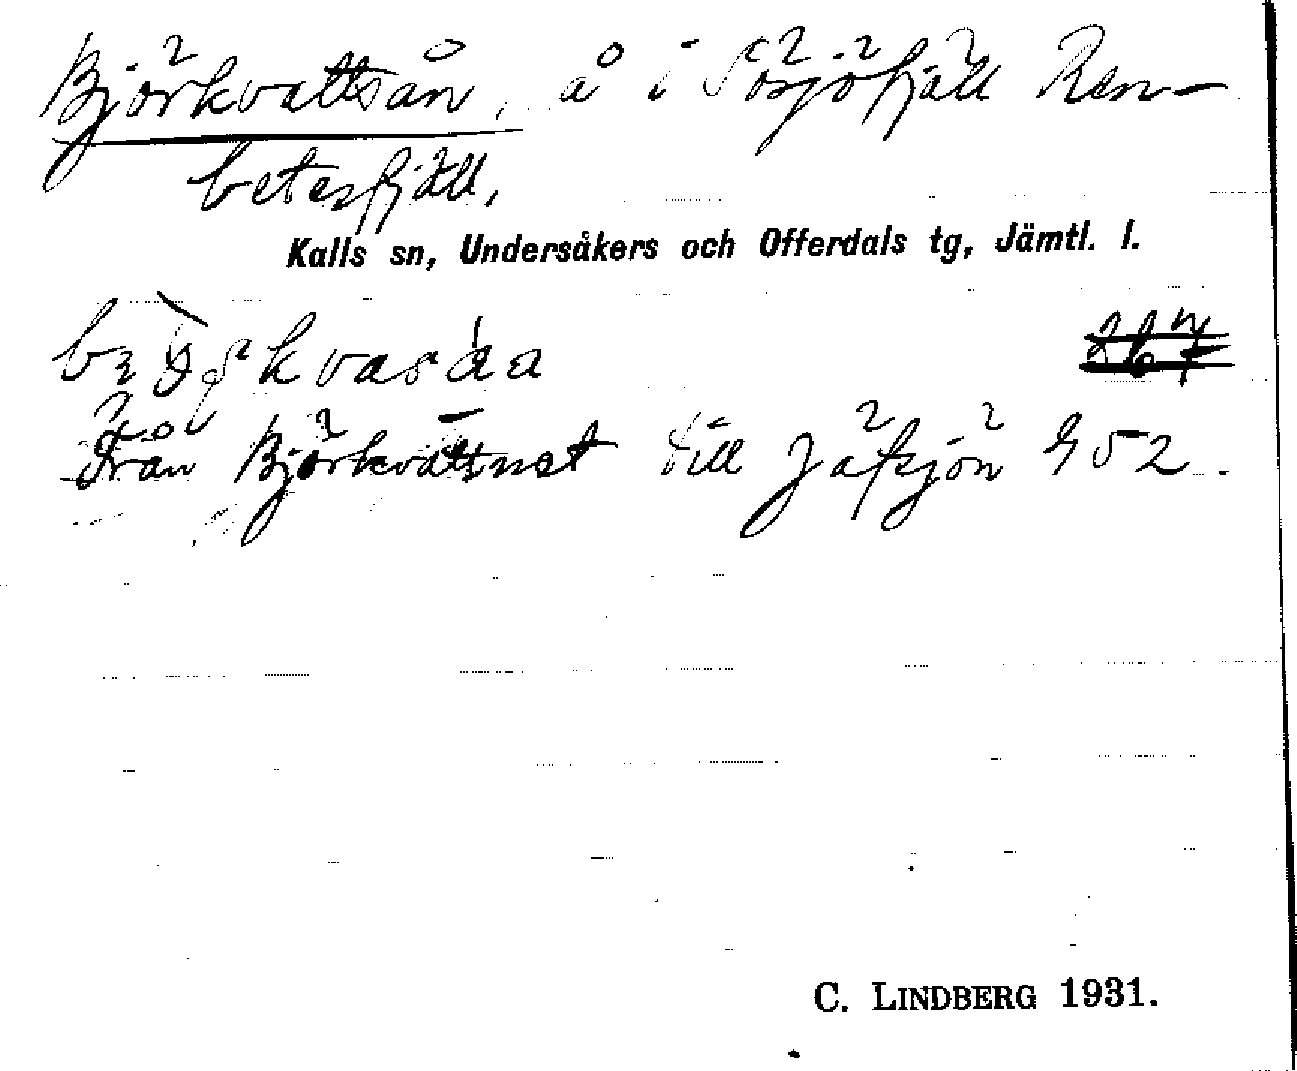 Björkvattsån, å i Sösjöfjäll Ren-
betesfjäll,
Kalls sn, Undersåkers och Offerdals tg, Jämtl. l.
267
Från Björkvattnet till Jäfsjön 452.
C. LINDBERG 1931.